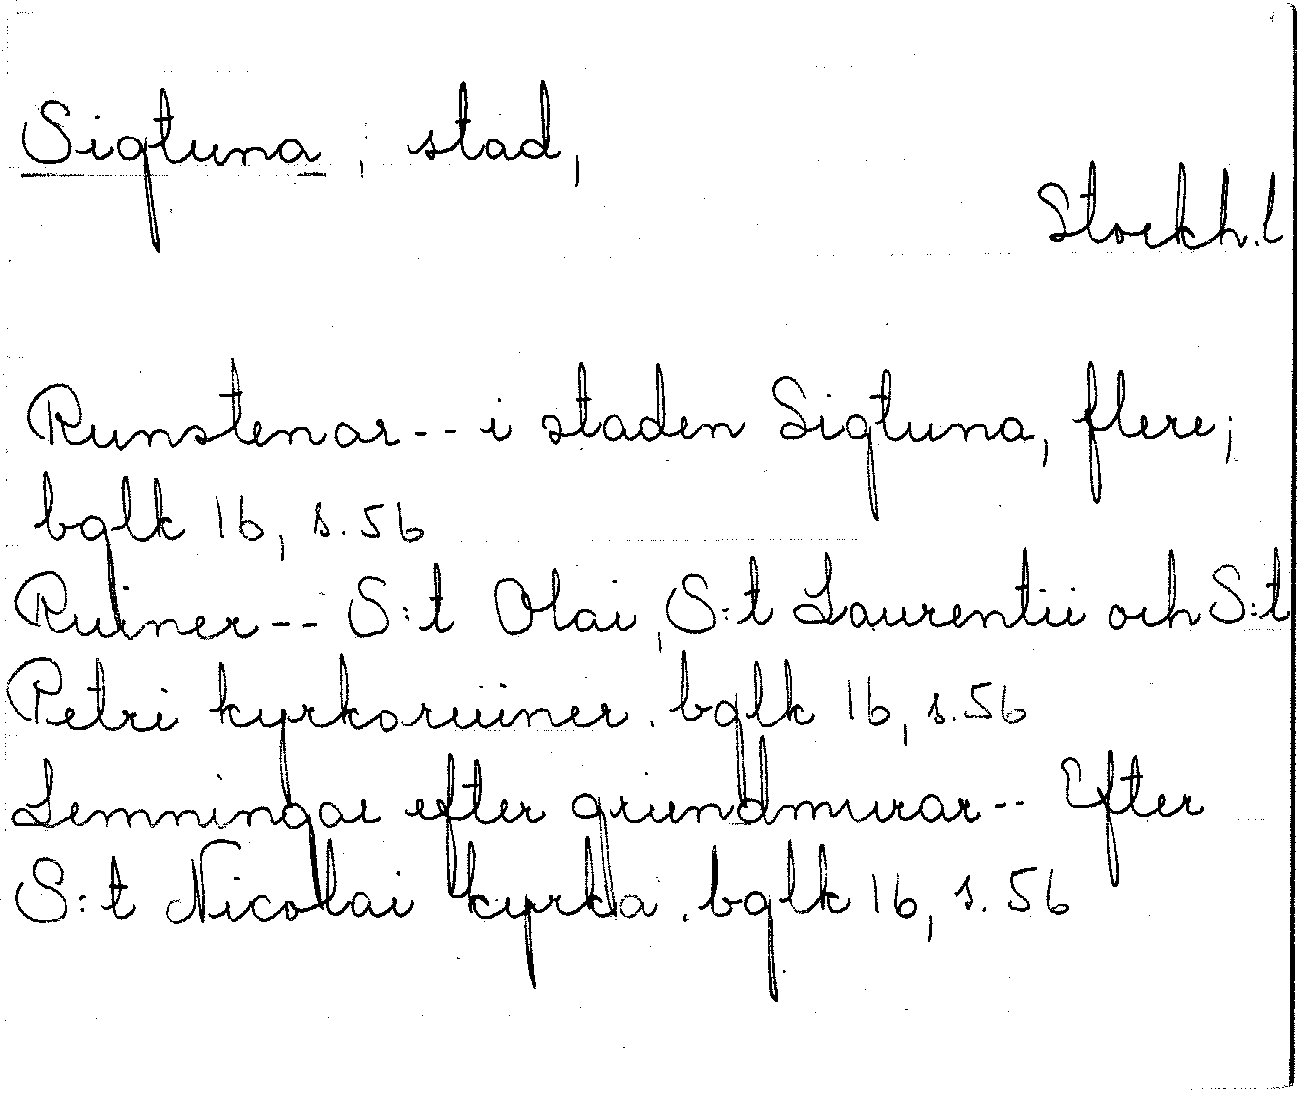 Sigtuna, stad,
Stockh. l
Runstenar -- i staden Sigtuna, flere;
bglk 16, s. 56
Ruiner -- S:t Olai, S:t Laurentii och S:t
Petri kyrkoruiner. bglk 16, s. 56
Lemningar efter grundmurar -- Efter
S:t Nicolai kyrka. bglk 16, s. 56